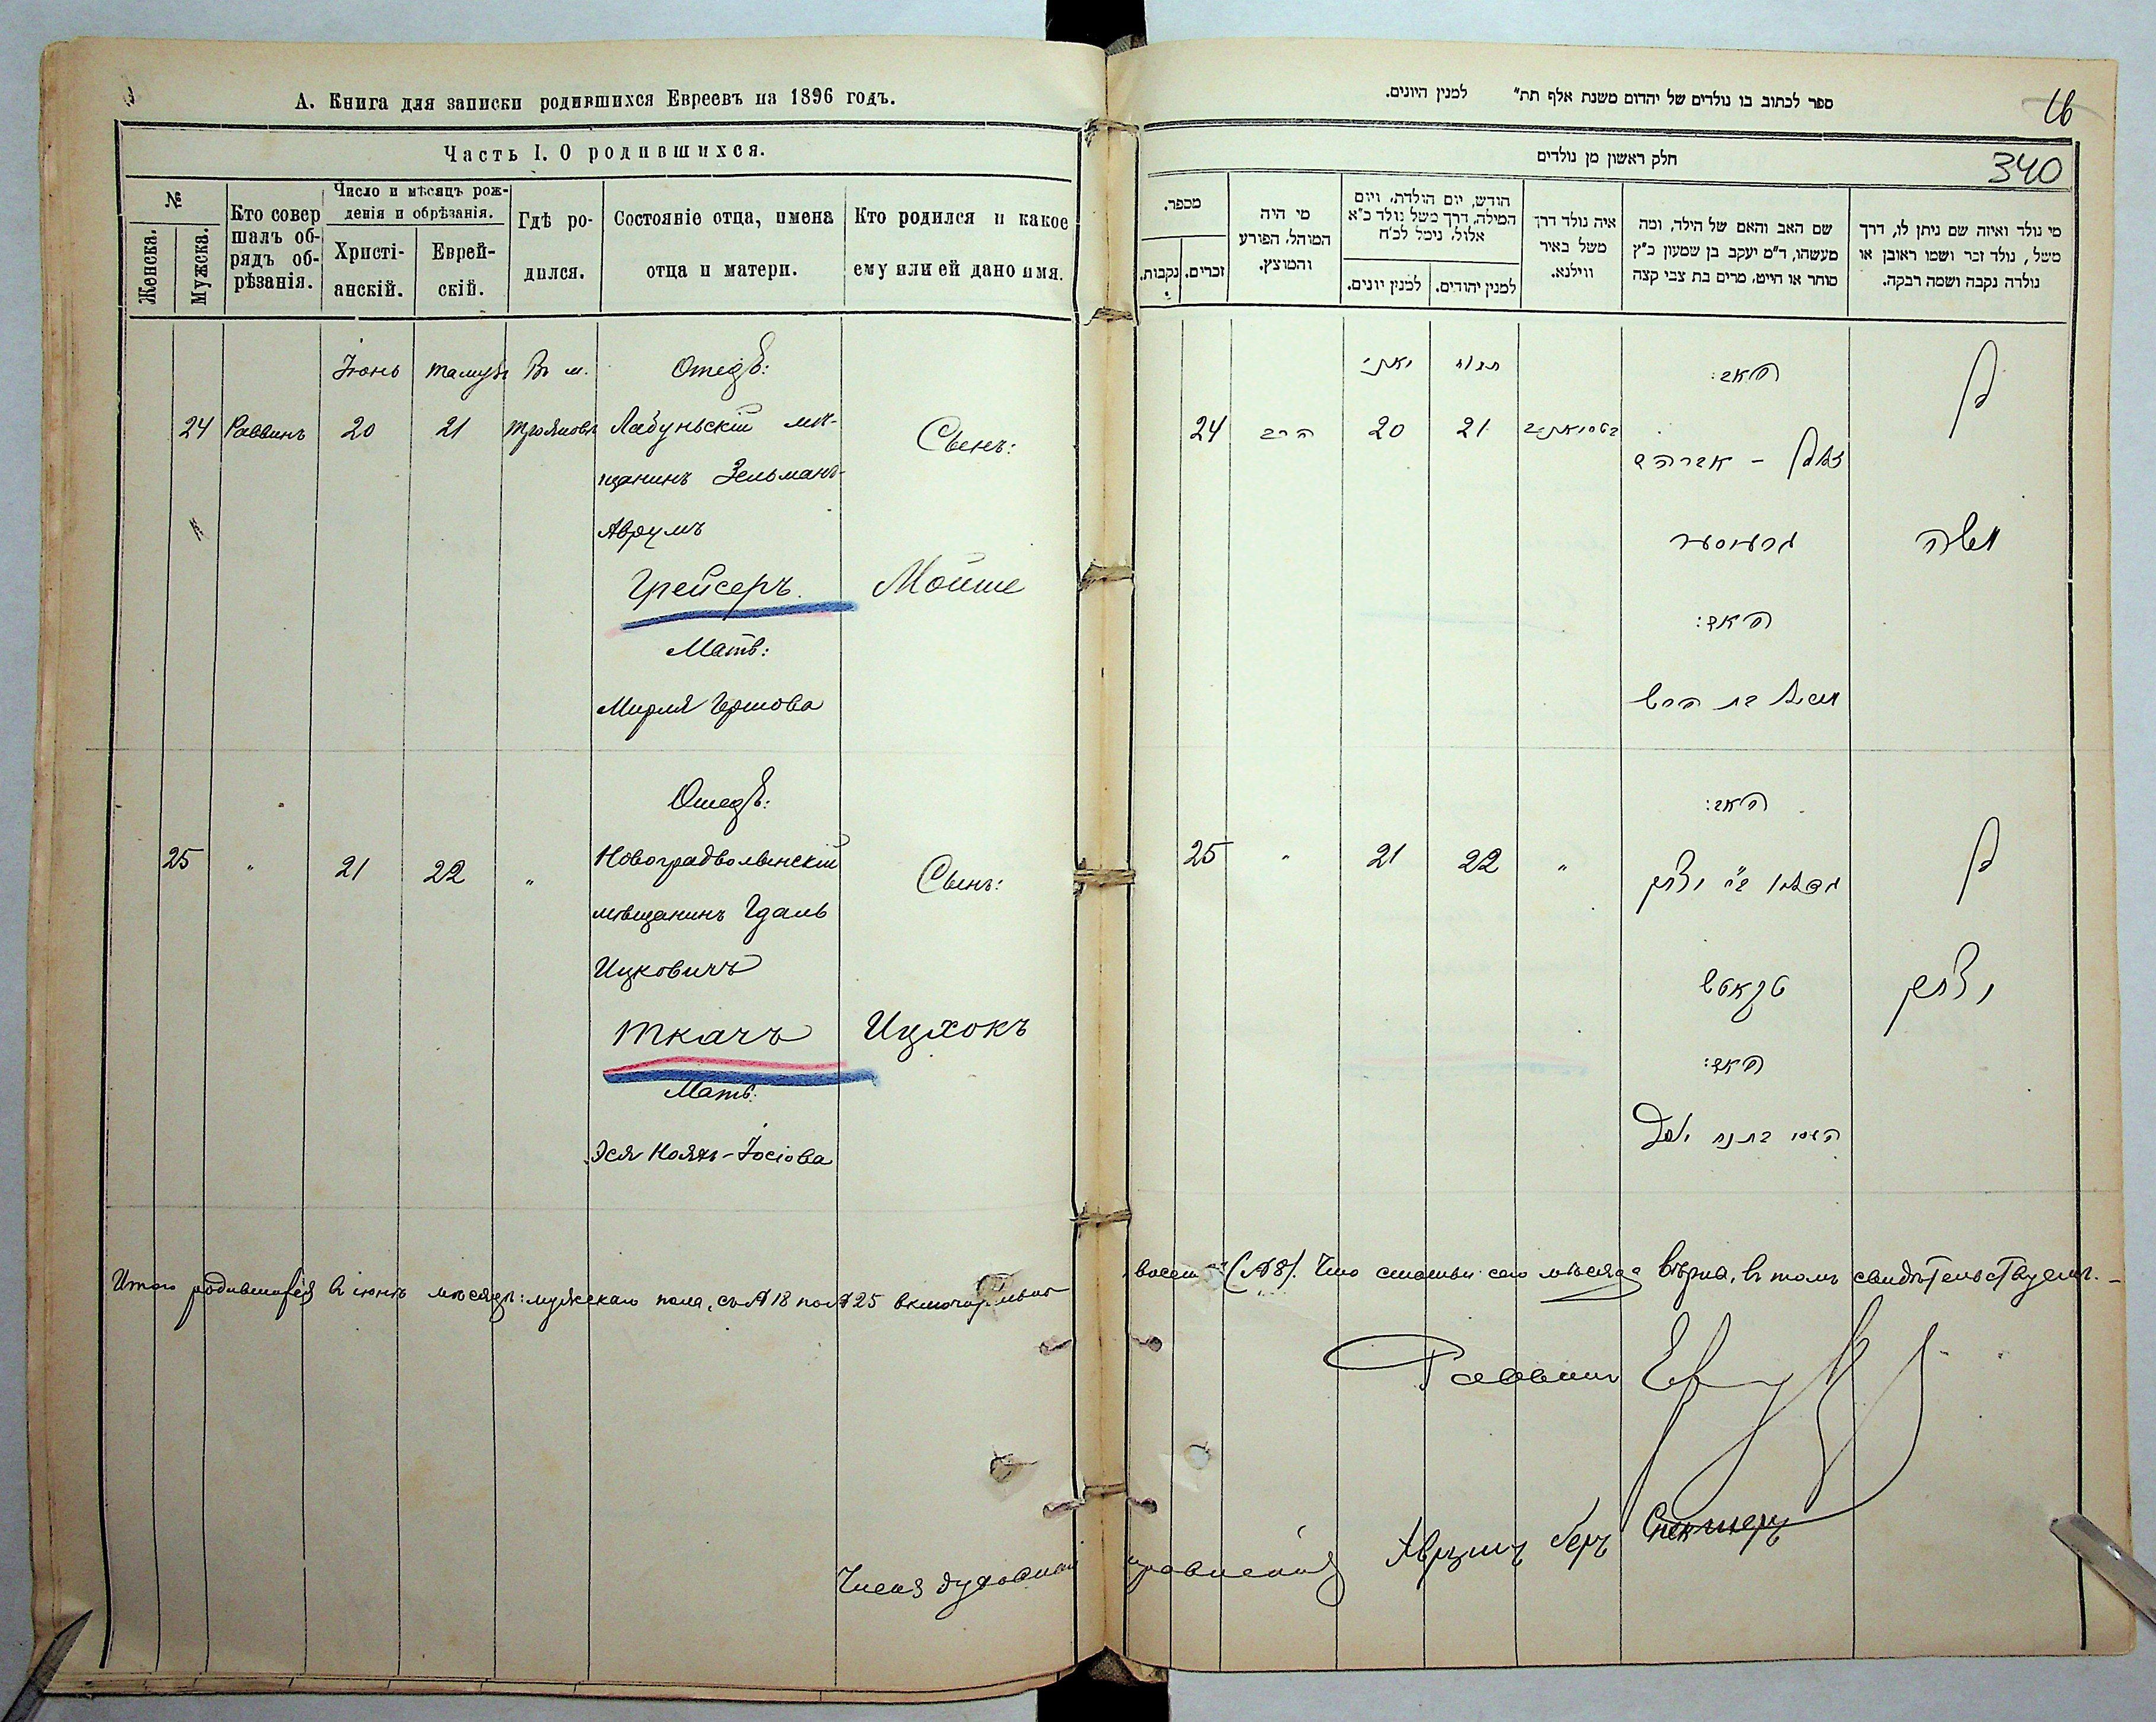 А. Книга для записки родившихся Евреевъ на 1896 годъ.
Часть I. О родившихся.
№
Женска.
Мужска.
Кто совер
шалъ об-
рядъ об-
рѣзанія.
Число и мѣсяцъ рож-
денія и обрѣзанія.
Христі-
анскій.
Еврей-
скій.
Гдѣ ро-
дился.
Состояніе отца, имена
отца и матери.
Кто родился и какое
ему или ей дано имя.
Іюнь Тамузъ Въ м. Отецъ:
24 Раввинъ 20 21 Трояновѣ Лабуньскій мѣ-
щанинъ Зельманъ-
Аврумъ
Грейсеръ.
Мать:
Мирля Гершова
Сынъ:
Мойше
Отецъ:
25 " 21 22 " Новоградволынскій
мѣщанинъ Гдаль
Ицковичъ
Ткачъ
Мать:
Эся Нояхъ-Іосіова
Сынъ:
Ицхокъ
Итого родившихся въ іюнѣ мѣсяцѣ: мужскаго пола, съ №18 по №25 включительно
Членъ духовнаго
ספר לכתוב בו נולדים של יהדום משנת אלף תת" למנין היונים.
16
חלק ראשון מן נולדים
340
מספר.
נקבות.
זכרים.
מי היה
המוהל, הפורע
והמוצץ.
חודש, יום הולדת, ויום
המילה, דרך משל נולד כ"א
אלול, נימל לכ"ח
למנין יונים.
למנין יהודים.
איה נולד דרך
משל באיר
ווילנא.
שם האב והאם של הילד, ומה
מעשהו, ד"מ יעקב בן שמעון כ"ץ
סוחר או חייט, מרים בת צבי קצה
מי נולד ואיזה שם ניתן לו, דרך
משל, נולד זכר ושמו ראובן או
נולדה נקבה ושמה רבקה.
תמוז
האב: בן
24 הרב 20 21
זלמן - אברהם
גרעוסער משה
האם:
בת הירש
האב:
25 " 21 22 " בן
גדליו ב"ר יצחק
טקאטש יצחק
האם:
восемь (№8). Что статьи сего мѣсяца вѣрна, въ томъ свидѣтельствуемъ. –
Раввинъ
правленія Аврумъ Беръ